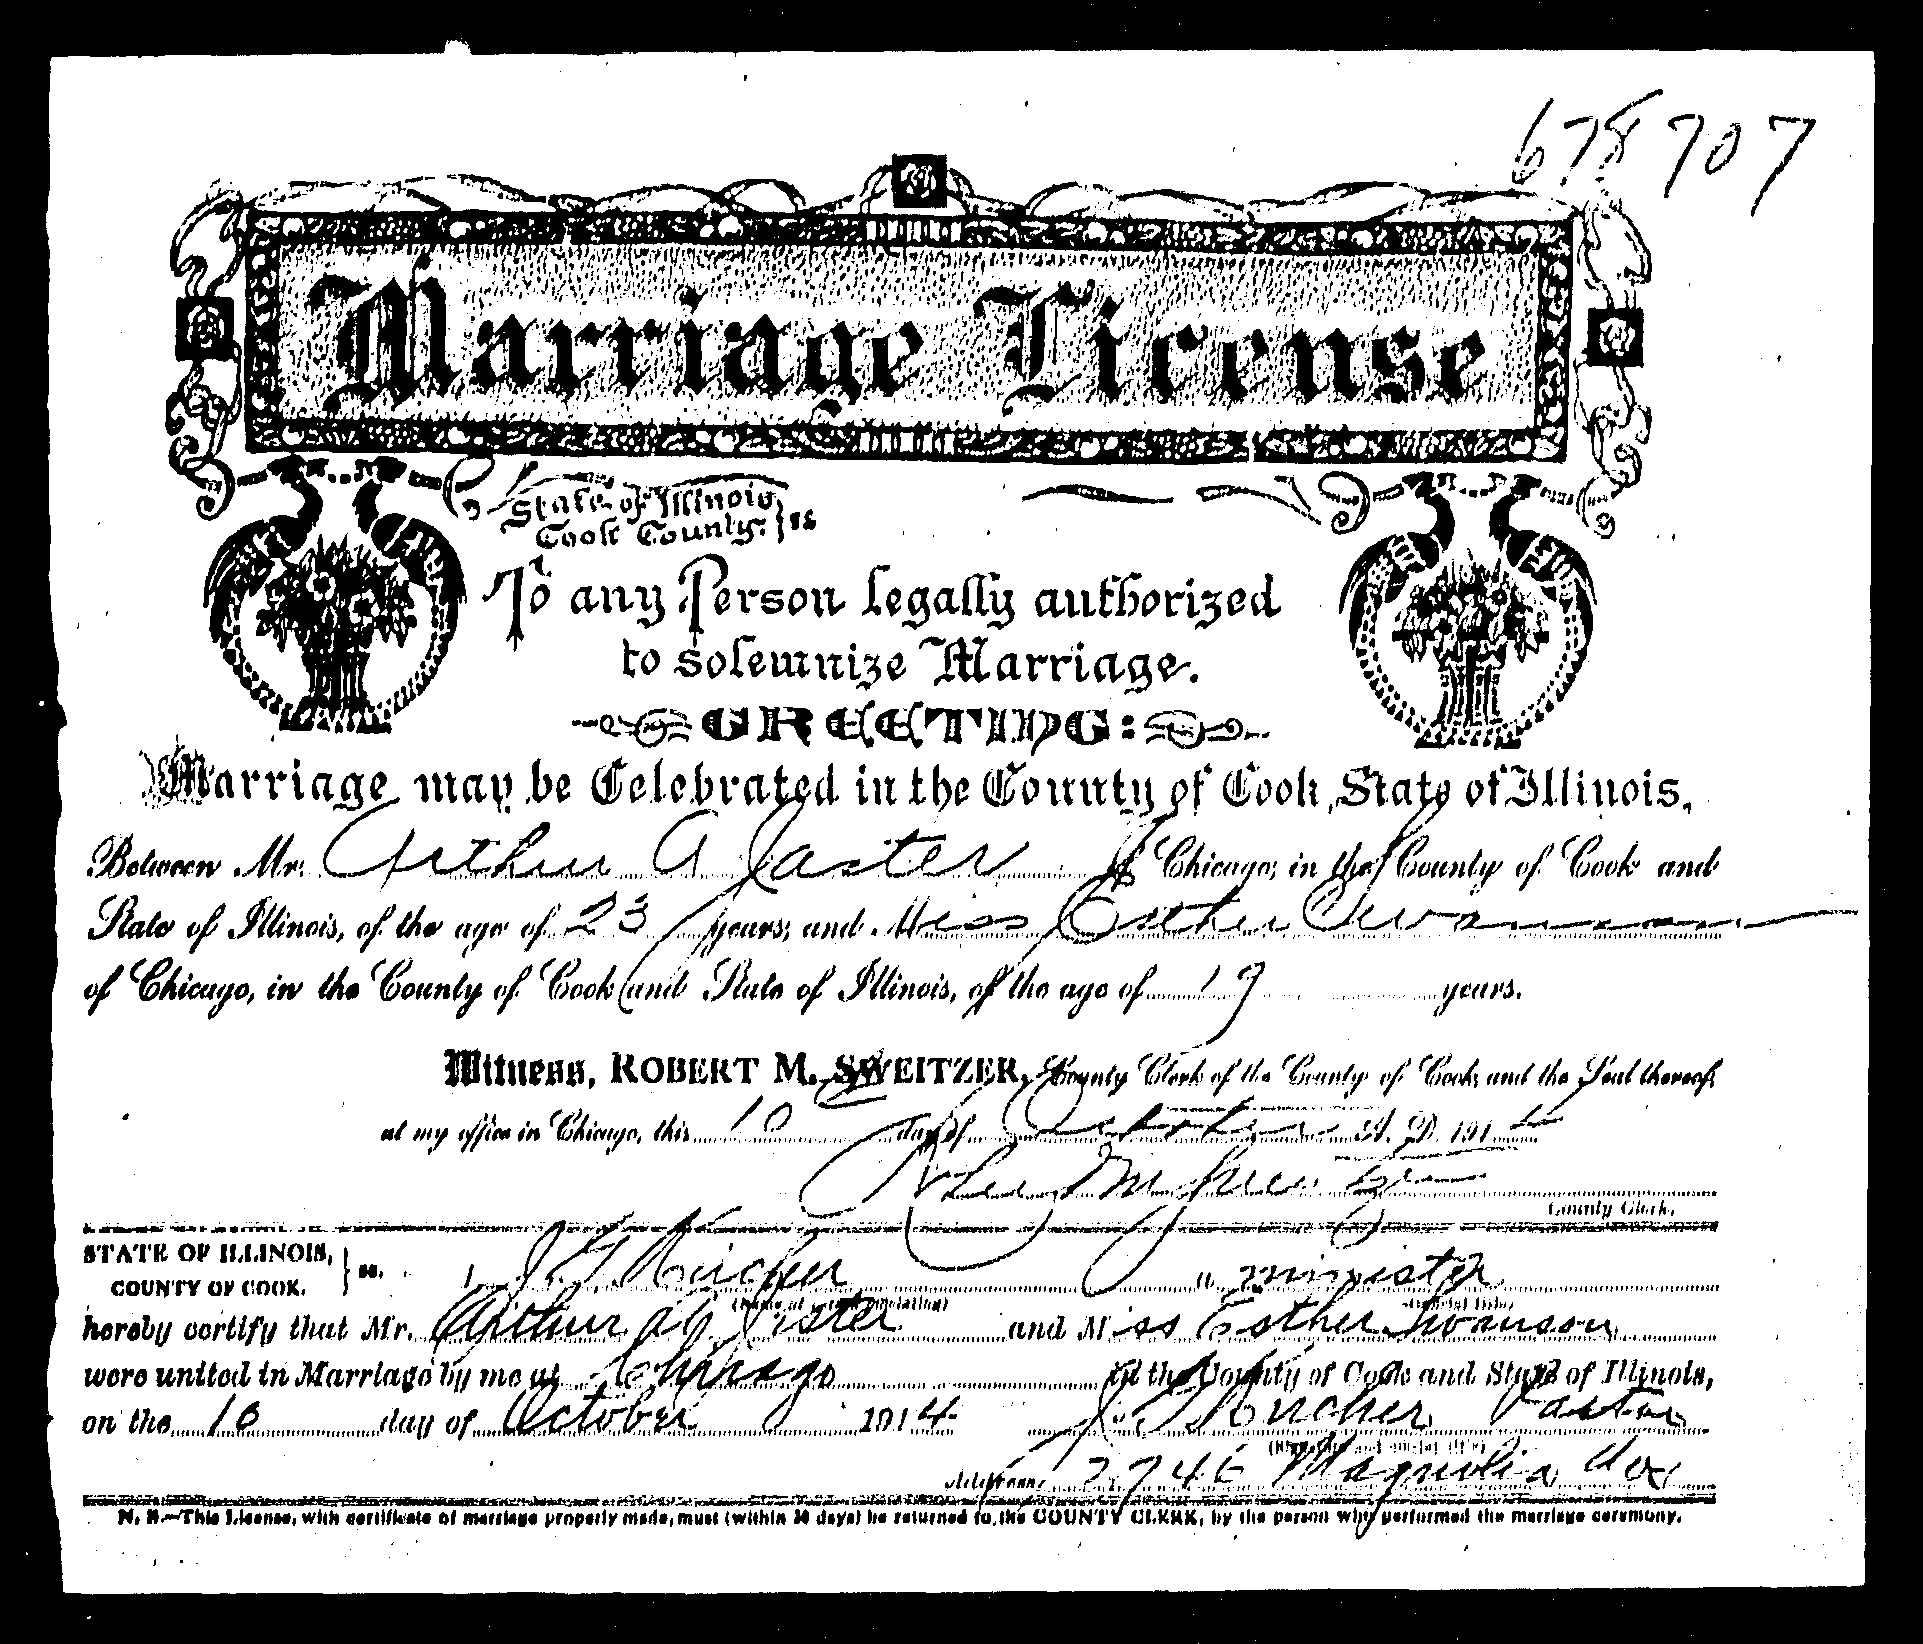 678707
Marriage License
State of Illinois
Cook County. } ss
To any Person legally authorized
to solemnize Marriage.
GREETING:
Marriage may be Celebrated in the County of Cook, State of Illinois,
Between Mr. Arthur A Jaster of Chicago, in the County of Cook and
State of Illinois, of the age of 23 years, and Miss Esther Swanson
of Chicago, in the County of Cook and State of Illinois, of the age of 19 years.
Witness, ROBERT M. SWEITZER, County Clerk of the County of Cook, and the Seal thereof,
at my office in Chicago, this 10 day of October A. D. 191
County Clerk.
STATE OF ILLINOIS, } ss.
COUNTY OF COOK.
I, J. G. Kircher a minister
hereby certify that Mr. Arthur A. Jaster and Miss Esther Swanson
were united in Marriage by me at Chicago in the County of Cook and State of Illinois,
on the 10 day of October 1914 J G Kircher Pastor
Address, 2746 Magnolia Ave
N. B.—This License, with certificate of marriage properly made, must (within 30 days) be returned to the COUNTY CLERK, by the person who performed the marriage ceremony.